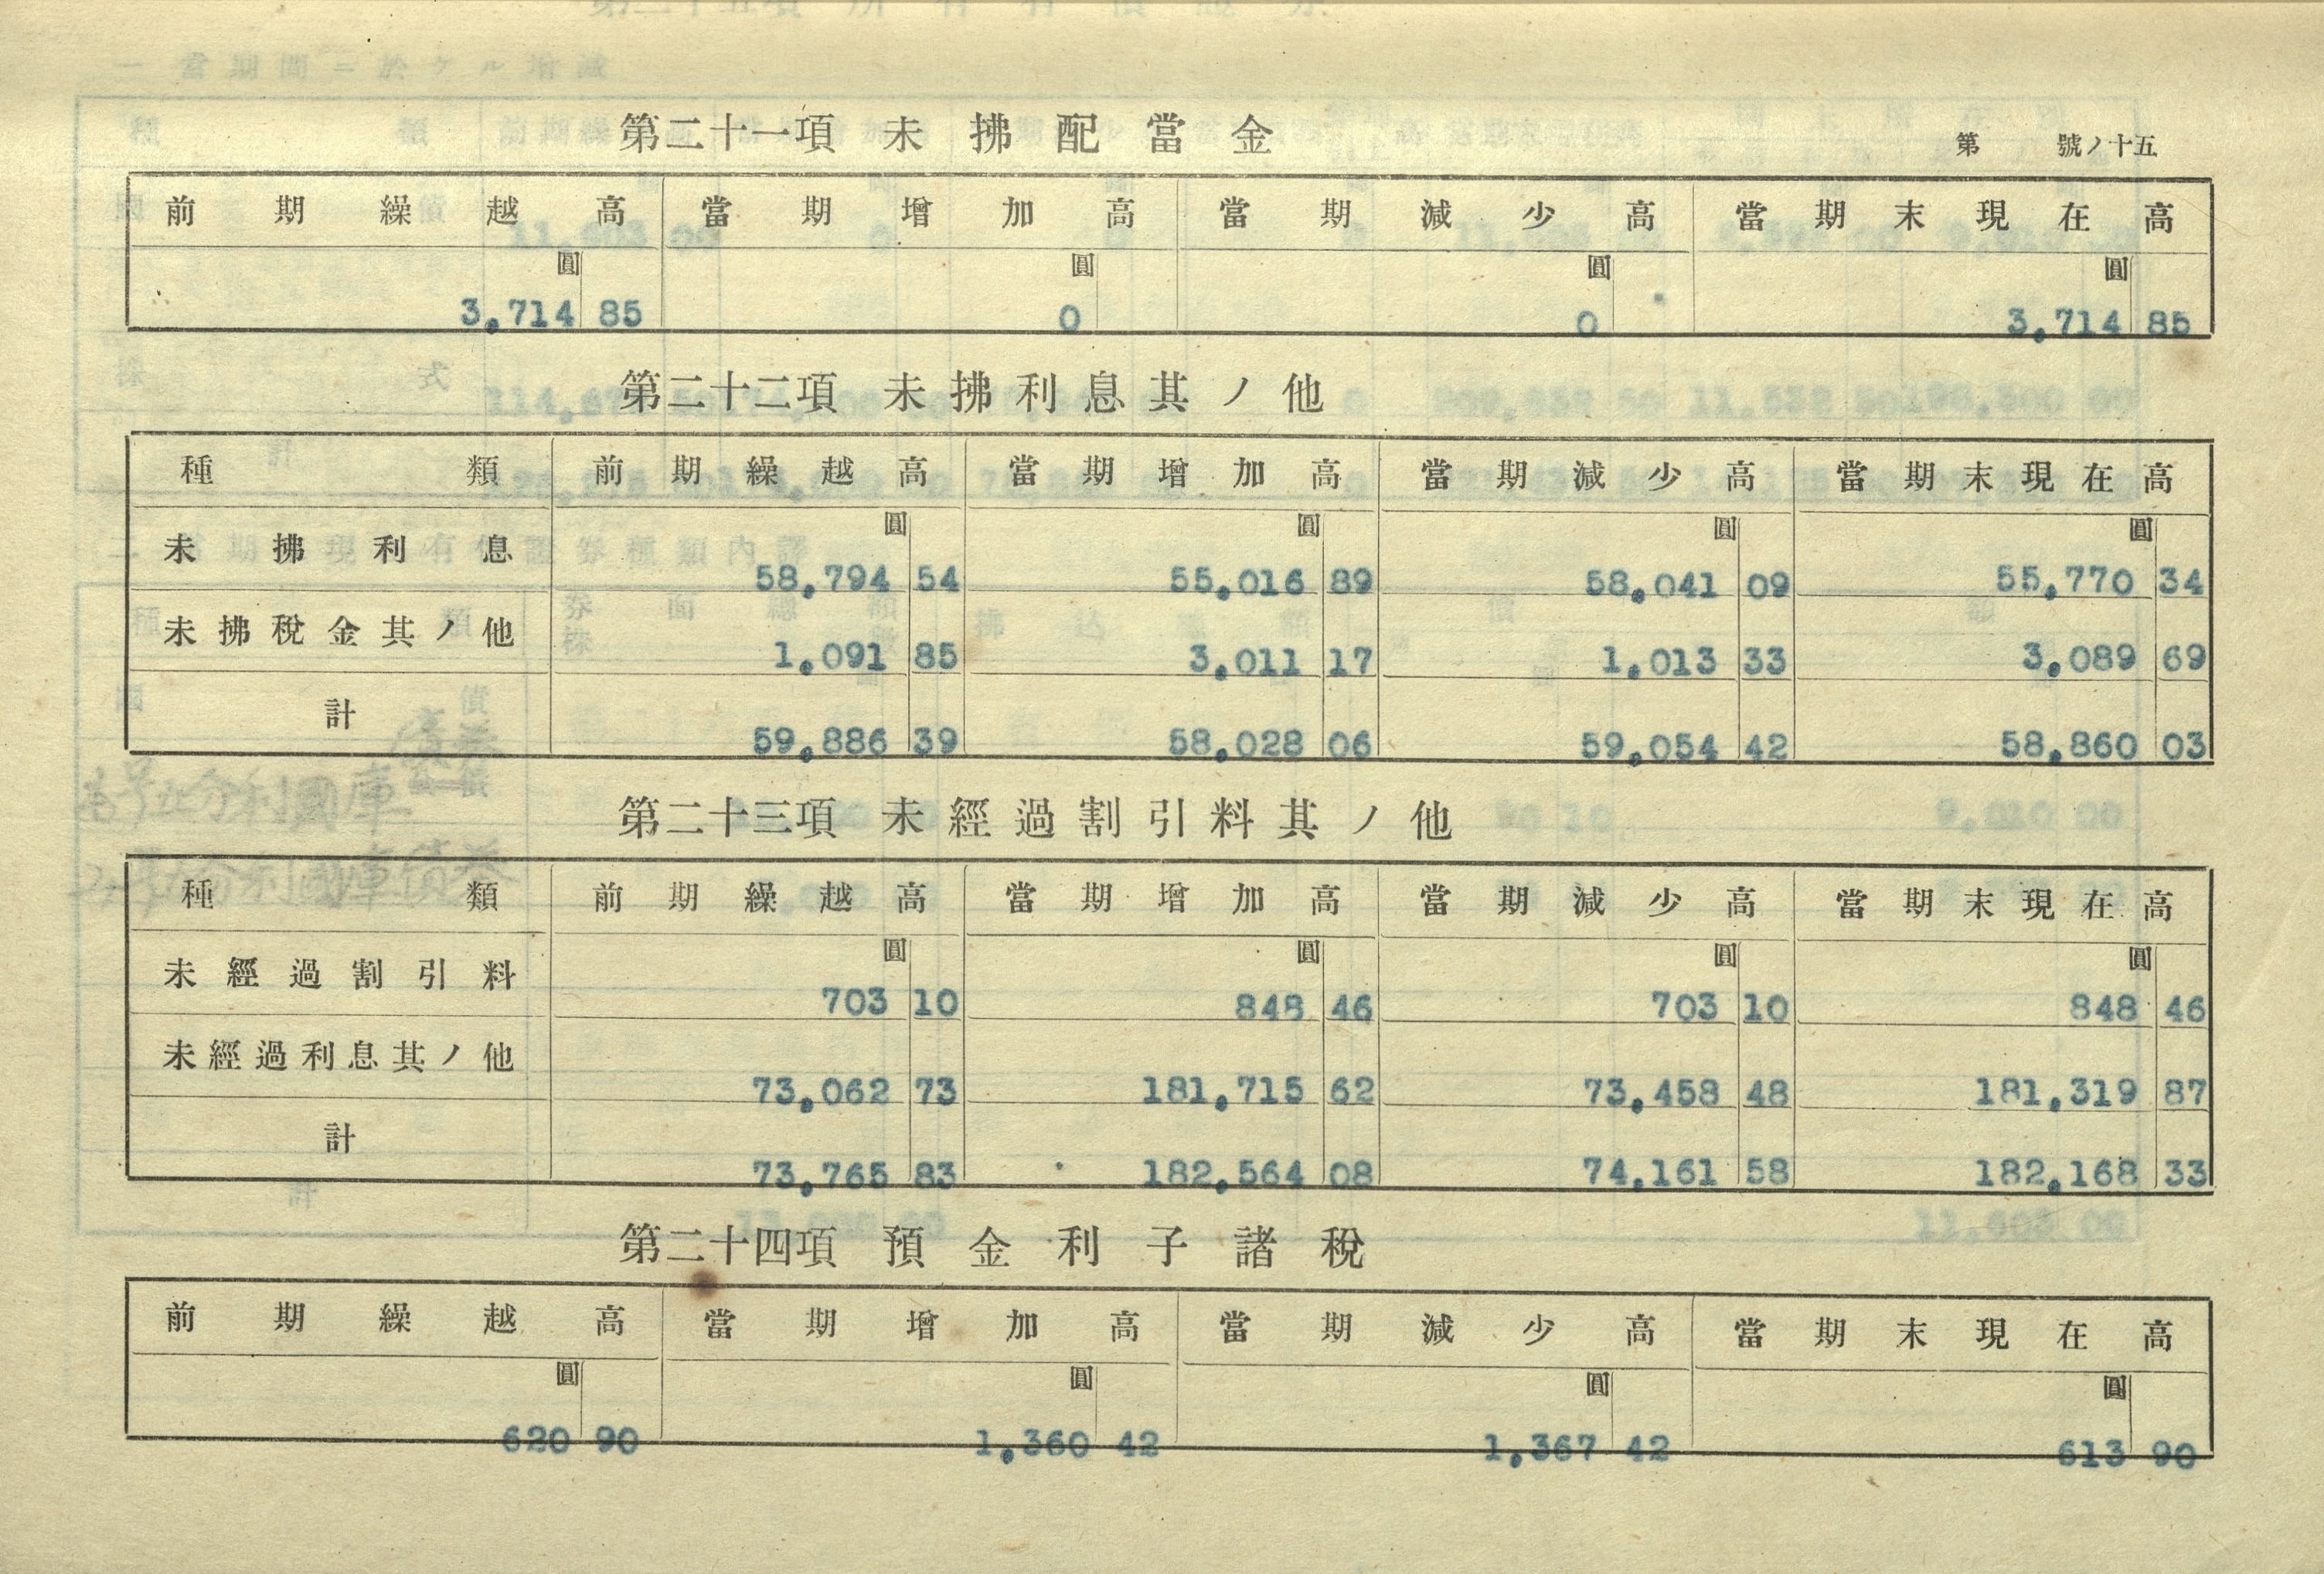 第二十一項 未拂配當金
第 號ノ十五
前期繰越高 當期增加高 當期減少高 當期末現在高
圓 圓 圓 圓
3,714 85 0 0 3,714 85
第二十二項 未拂利息其ノ他
種類 前期繰越高 當期增加高 當期減少高 當期末現在高
圓 圓 圓 圓
未拂利息 58,794 54 55,016 89 58,041 09 55,770 34
未拂稅金其ノ他 1,091 85 3,011 17 1,013 33 3,089 69
計 59,886 39 58,028 06 59,054 42 58,860 03
第二十三項 未經過割引料其ノ他
種類 前期繰越高 當期增加高 當期減少高 當期末現在高
圓 圓 圓 圓
未經過割引料 703 10 848 46 703 10 848 46
未經過利息其ノ他 73,062 73 181,715 62 73,458 48 181,319 87
計 73,765 83 182,564 08 74,161 58 182,168 33
第二十四項 預金利子諸稅
前期繰越高 當期增加高 當期減少高 當期末現在高
圓 圓 圓 圓
620 90 1,360 42 1,367 42 613 90